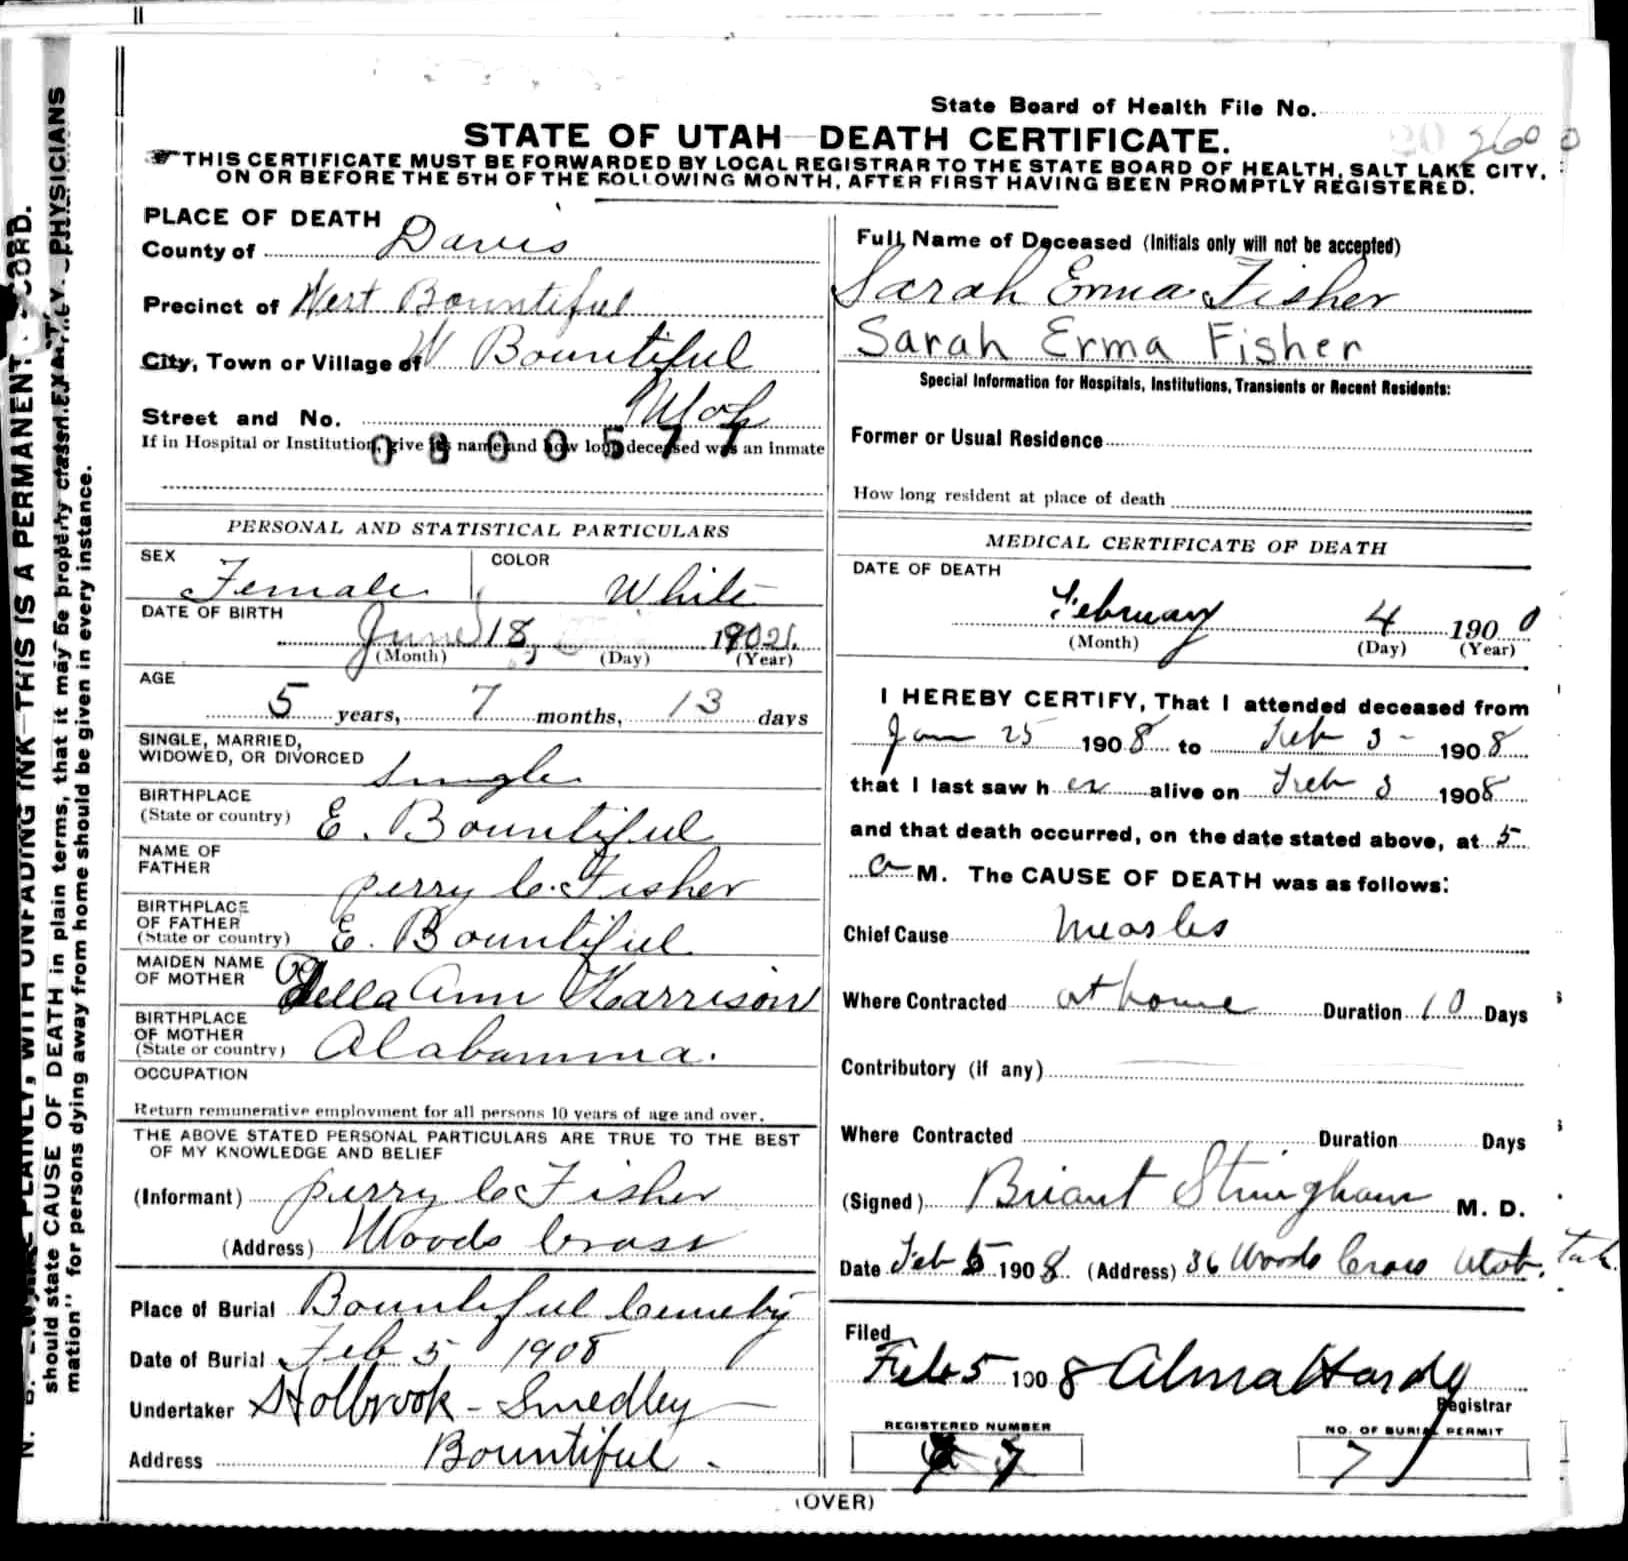 State Board of Health File No.
STATE OF UTAH—DEATH CERTIFICATE.
THIS CERTIFICATE MUST BE FORWARDED BY LOCAL REGISTRAR TO THE STATE BOARD OF HEALTH, SALT LAKE CITY,
ON OR BEFORE THE 5TH OF THE FOLLOWING MONTH, AFTER FIRST HAVING BEEN PROMPTLY REGISTERED.
PLACE OF DEATH
County of Davis
Precinct of West Bountiful
City, Town or Village of W Bountiful
Street and No. Utah
If in Hospital or Institution, give its name and how long deceased was an inmate
0800577
PERSONAL AND STATISTICAL PARTICULARS
SEX Female COLOR White
DATE OF BIRTH June 18, 1902
(Month) (Day) (Year)
AGE
5 years, 7 months, 13 days
SINGLE, MARRIED,
WIDOWED, OR DIVORCED Single
BIRTHPLACE
(State or country) E. Bountiful
NAME OF
FATHER Perry C. Fisher
BIRTHPLACE
OF FATHER
(State or country) E. Bountiful
MAIDEN NAME
OF MOTHER Della Ann Harrison
BIRTHPLACE
OF MOTHER
(State or country) Alabamma.
OCCUPATION
Return remunerative employment for all persons 10 years of age and over.
THE ABOVE STATED PERSONAL PARTICULARS ARE TRUE TO THE BEST
OF MY KNOWLEDGE AND BELIEF
(Informant) Perry C Fisher
(Address) Woods Cross
Place of Burial Bountiful
Date of Burial Feb 5 1908
Undertaker Holbrook - Smedley
Address Bountiful
Full Name of Deceased (Initials only will not be accepted)
Sarah Erma Fisher
Sarah Erma Fisher
Special Information for Hospitals, Institutions, Transients or Recent Residents:
Former or Usual Residence
How long resident at place of death
MEDICAL CERTIFICATE OF DEATH
DATE OF DEATH
February 4 190
(Month) (Day) (Year)
I HEREBY CERTIFY, That I attended deceased from
Jan 25 1908 to Feb 3 - 1908
that I last saw her alive on Feb 3 1908
and that death occurred, on the date stated above, at 5
a M. The CAUSE OF DEATH was as follows:
Chief Cause measles
Where Contracted at home Duration 10 Days
Contributory (if any)
Where Contracted Duration Days
(Signed) Briant Stringham M. D.
Date Feb 5 1908 (Address) 36 Woods Cross Utah.
Filed
Feb 5 1908 Alma Hardy
Registrar
REGISTERED NUMBER
7
NO. OF BURIAL PERMIT
7
(OVER)
PLAINLY, WITH UNFADING INK—THIS IS A PERMANENT
should state CAUSE OF DEATH in plain terms, that it may be properly PHYSICIANS
mation" for persons dying away from home should be given in every instance.